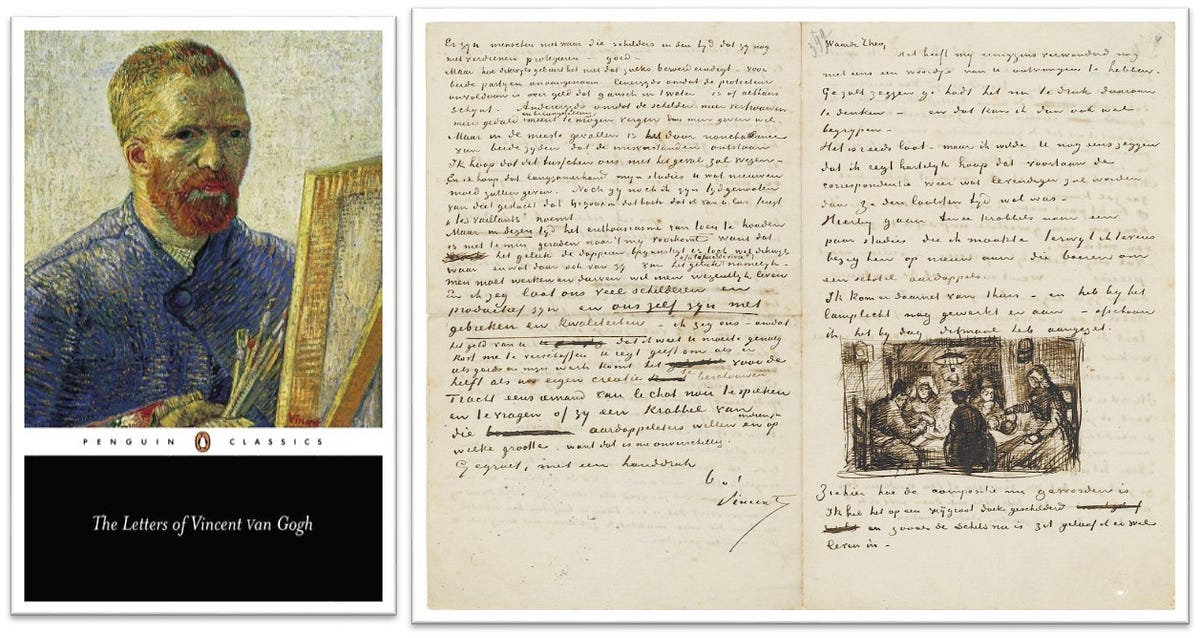 PENGUIN CLASSICS
The Letters of Vincent van Gogh
Er zyn menschen niet waar die schilders in den tyd dat zy nog
niet verdienen protegeren — goed —
Maar hoe dikwyls gebeurt het niet dat zulks beroerd eindigt — voor
beide partyen onaangenaam eenerzyds omdat de protecteur
onvoldaan is over geld dat gansch in 't water is of althans
schynt. Anderzyds omdat de schilder meer vertrouwen
meer geduld meer belangstelling meent te mogen vergen dan men geven wil
Maar in de meeste gevallen is het door nonchalance
van beide zyden dat de misverstanden ontstaan
Ik hoop dat dit tusschen ons niet het geval zal wezen —
En ik hoop dat langzamerhand myn studies U wat nieuwen
moed zullen geven. Noch gy noch ik zyn tydgenooten
van die geslacht dat Gigoux in dat boek dat ik van U las teregt
"les vaillants" noemt
Maar in dezen tyd het enthousiasme van toen te houden
is niet te min geraden naar 't my voorkomt want dat
het geluk de dapperen begunstigt is toch wel dikwyls
waar en wat daar ook van zy van het geluk namelyk —
(of la joie (?) de vivre)
men moet werken en durven wil men wezentlyk leven
En ik zeg laat ons veel schilderen en
productief zyn en ons zelf zyn met
gebreken en kwaliteiten — ik zeg ons — omdat
het geld van U dat ik weet U moeite genoeg
kost me te verschaffen U regt geeft om als er
iets goeds in myn werk komt het voor de
helft als uw eigen creatie te beschouwen
Tracht eens iemand van le chat noir te spreken
en te vragen of zy een krabbel van
die aardappeleters willen en zoo ja op
welke grootte want dat is me onverschillig
Gegroet, met een handdruk
b à t
Vincent
Waarde Theo,
Het heeft my eenigzins verwonderd nog
niet eens een woordje van U ontvangen te hebben.
Ge zult zeggen ge hadt het nu te druk daaraan
te denken — en dat kan ik dan ook wel
begrypen —
Het is reeds laat — maar ik wilde U nog eens zeggen
dat ik regt hartelyk hoop dat voortaan de
correspondentie weer wat levendiger zal worden
dan ze den laatsten tyd wel was —
Hierby gaan twee krabbels naar een
paar studies die ik maakte terwyl ik tevens
bezig ben op nieuw aan die boeren om
een schotel aardappels.
Ik kom er daarnet van thuis — en heb by het
lamplicht nog gewerkt er aan — ofschoon
ik het by dag ditmaal heb aangezet.
Ziehier hoe de compositie nu geworden is.
Ik heb het op een vry groot doek geschilderd
en zooals de schets nu is zit geloof ik er wel
leven in —